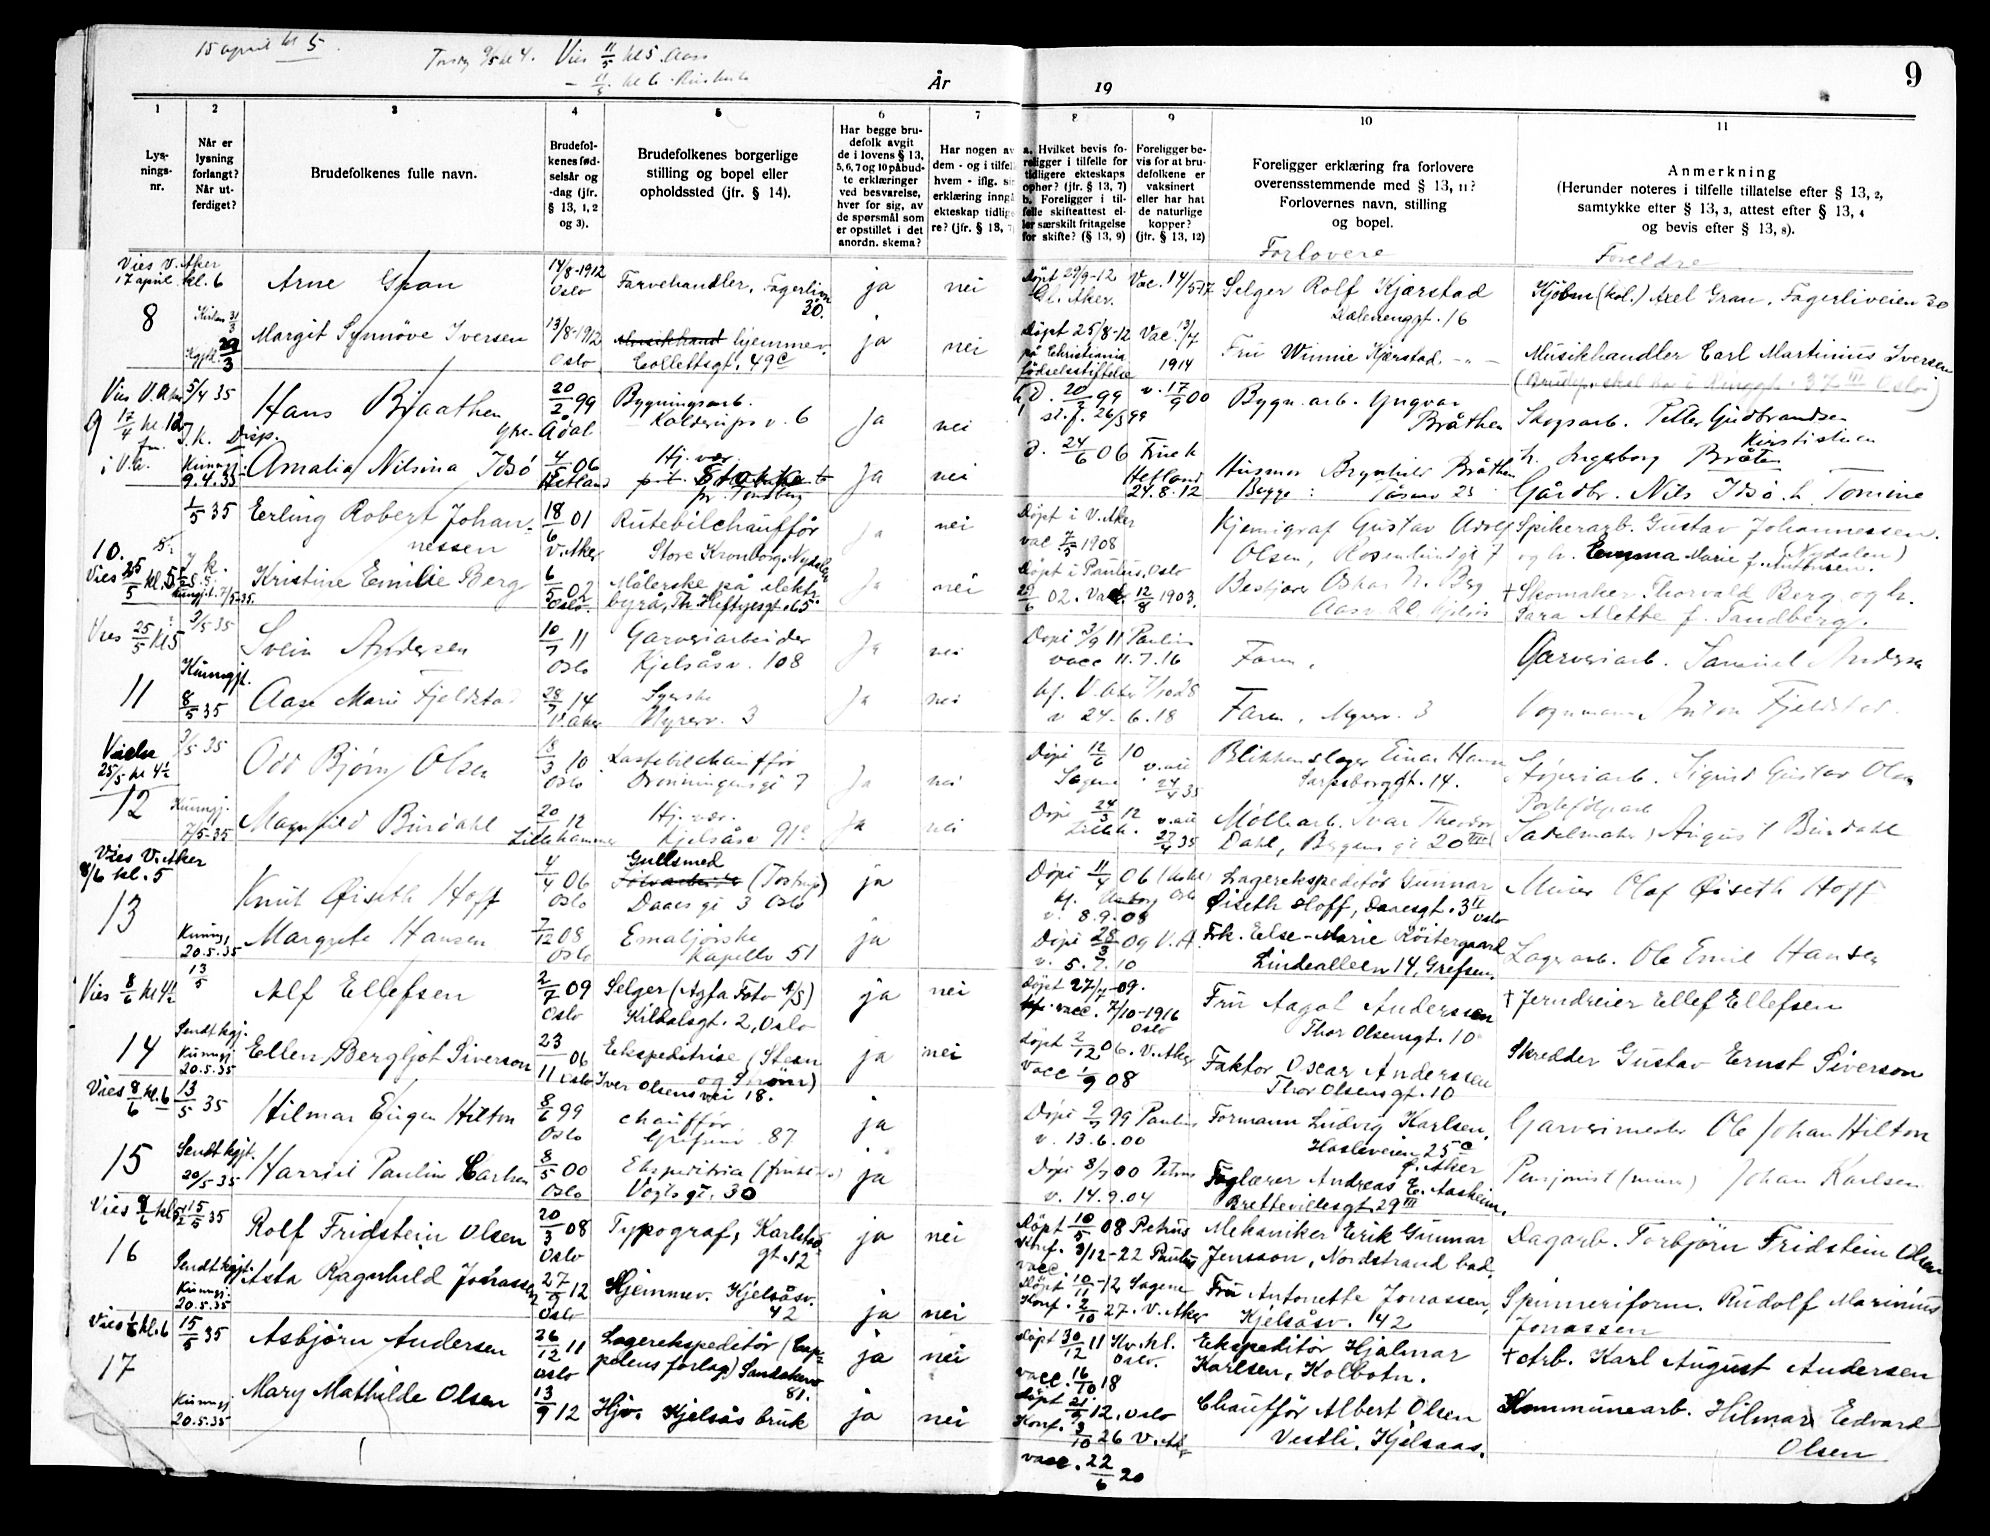 15 april kl 5.
Vies 11/5 kl 5. Aas
11/5 kl. 6
År
19
9
1
2
3
4
5
6
7
8
9
10
11
Lys-
nings-
nr.
Når er
lysning
forlangt?
Når ut-
ferdiget?
Brudefolkenes fulle navn.
Brudefol-
kenes fød-
selsår og
-dag (jfr.
§ 13, 1, 2
og 3).
Brudefolkenes borgerlige
stilling og bopel eller
opholdssted (jfr. § 14).
Har begge bru-
defolk avgit
de i lovens § 13,
5, 6, 7 og 10 påbud-
te erklæringer
ved besvarelse,
hver for sig, av
de spørsmål som
er opstillet i det
anordn. skema?
Har nogen av
dem - og i tilfelle
hvem - iflg. sin
erklæring inngå
ekteskap tidlige
re? (jfr. § 13, 7)
a. Hvilket bevis fo-
religger i tilfelle for
tidligere ekteskaps
ophør? (jfr. § 13, 7)
b. Foreligger i til-
felle skifteattest el-
ler særskilt fritagelse
for skifte? (§ 13, 9)
Foreligger be-
vis for at bru-
defolkene er
vaksinert
eller har hat
de naturlige
kopper?
(jfr. § 13, 12)
Foreligger erklæring fra forlovere
overensstemmende med § 13, 11?
Forlovernes navn, stilling
og bopel.
Forlovere
Anmerkning
(Herunder noteres i tilfelle tillatelse efter § 13, 2,
samtykke efter § 13, 3, attest efter § 13, 4
og bevis efter § 13, 8).
Foreldre
Vies V. Aker
17 april kl. 6
Arne Gran
14/8-1912
Oslo
Farvehandler, Fagerliv
30.
ja
nei
Døpt 29/9-12
Gl. Aker.
Vac. 14/5-17
Selger Rolf Kjærstad
Dælenenggt. 16
Kjøbm (kol.) Axel Gran, Fagerliveien 30
8
29/3
Margit Synnøve Iversen
13/8-1912
Oslo
hjemmev.
Collettsgt. 49c
ja
nei
Døpt 25/8-12
på Christiania
fødselsstiftelse
Vac. 13/4
1914
Fru Winnie Kjærstad. - " -
Musikhandler Carl Martinius Iversen
Vies V. Aker
17/4 kl. 12
5/4 35
9
Hans Braathen
20/2 99
Ådal
Bygningsarb.
Kalderupsv. 6
ja
nei
20/2 99
v. 17/9 00
Bygn. arb. Yngvar
Bråthen
Skogsarb. Petter Gudbrandsen
Kirstistuen
h. Ingeborg Bråten
Kunngj.
9.4.35
Amalia Nilsina Idsö
4/5 06
Hetland
Hj. vær.
Ja
nei
D. 24/6 06
Hetland
24.8.12
Husmor Brynhild Bråthen
Begge: Tåsenv 23
Gårdbr. Nils Idsö. h. Tomine
1/5 35
Erling Robert Johan-
nessen
18/6 01
V. Aker
Rutebilchauffør
Store Kronborg, Nydalen
Ja
nei
Døpt i V. Aker
vac 7/5 1908
Kjemigraf Gustav Adolf
Olsen, Rosenlundgt 7
Spikerarb. Gustav Johannessen.
og h. Emma Marie f. Antonsen. Nydalen)
10.
Vies 25/5 kl. 5
7/5-35.
Kristine Emilie Berg
6/5 02
Oslo.
Målerske på elektr.
byrå, Th. Heftyesgt. 65.
Ja
nei
Døpt i Paulus, Oslo
29/6 02. Vac. 12/8 1903.
Bestyrer Oskar N. Berg
† Skomaker Thorvald Berg og h.
Sara Alette f. Sandberg.
Vies 25/5 kl 5
3/5 35
Svein Andersen
10/7 11
Oslo
Garveriarbeider
Kjelsåsv. 108
Ja
nei
Døpt 3/9 11 Paulus
vacc 11.7.16
Faren,
Garveriarb. Samuel Andersen
11
Kunngjt.
8/5 35
Aase Marie Fjeldstad
28/7 14
V. Aker
Syerske
Myrerv. 3
Ja
nei
v 24.6.18
Faren, Myrerv. 3
Vognmann Anton Fjeldstad.
Vielse
25/5 kl 4½
3/5 35
Odd Bjørn Olsen
18/3 10
Oslo
Lastebilchauffør
Dronningensgt 7
Ja
nei
Døpt 12/6 10
Sagene
24/4 35
Blikkenslager Einar Hansen
Sarpsborggt. 14.
Støperiarb. Sigurd Gustav Olsen
12
Kunngj.
7/5-35
Magnhild Burdahl
20/ 12
Lillehammer
Hj. vær.
Kjelsåsv 91c
Ja
nei
Døpt 24/3 12
Lilleh.
27/4 35
Møllearb. Ivar Theodor
Dahl, Bergensgt 20 III
Salmaker August Burdahl
Vies V. Aker
8/6 kl. 5
13
Knut Øiseth Hoff
4/4 06
Oslo
Gullsmed
(Tostrup)
Daaes gt 3 Oslo
ja
Døpt 11/4 06
v. 8.9.08
Lagerekspeditør Gunnar
Øiseth Hoff, Daaesgt. 3 II Oslo
Murer Olaf Øiseth Hoff
Kunngj.
20.5.35
Margrete Hansen
7/12 08
Oslo
Emaljørske
Kapellv 51
ja
Døpt 28/3 09 V. A.
v. 5.7.10
Frk. Else-Marie Röitergaard
Lindealleen 14, Grefsen.
Lagerarb. Ole Emil Hansen
Vies 8/6 kl 4½
13/5
Alf Ellefsen
2/7 09
Oslo
Selger (Agfa Foto A/S)
Kildalsgt. 2, Oslo
ja
nei
Døpt 27/7-09.
vacc. 7/10-1916
Oslo
Fru Aagot Anderssen
Thor Olsensgt. 10
† Jerndreier Ellef Ellefsen
14
Sendt kgj.
Kunngj.
20.5.35
Ellen Bergljot Siverson
23/11 06
Oslo
Ekspeditrise (Steen
og Strøm)
Iver Olsensvei 18.
ja
nei
Døpt 2/12 06. V. Aker
Vacc 1/9 08
Faktor Oscar Anderssen
Thor Olsensgt. 10
Skredder Gustav Ernst Siverson
Vies 8/6 kl. 6
13/5 35
Hilmar Eugen Hilton
8/6 99
Oslo
Chauffør
Grefsenv. 87
ja
Døpt 9/7 99 Paulus
v. 13.6.00
Formann Ludvig Karlsen,
Hasleveien 25c
Ø. Aker
Garverimester Ole Johan Hilton
15
Sendt kgjt.
20/5-35
Harriet Pauline Carlsen
8/5 00
Oslo
Vogts gt. 30
ja
Døpt 8/7 00 Petrus
v. 14.9.04
Faglærer Andreas E. Aasheim,
Brettevillesgt 29 III
Pensjonist (murer) Johan Karlsen
Vies 8/6 kl 5½
15/5 35
16
Rolf Fridstein Olsen
20/3 08
Oslo
Typograf, Karlstad
gt. 12
ja
nei
Døpt 10/5 08 Petrus
Konf. 3/12-22 Paulus
vacc.
Mekaniker Erik Gunnar
Jensson, Nordstrand bad.
Dagarb. Torbjørn Fridstein Olsen
Sendt kgjt.
Kunngj.
20.5.35
Asta Ragnhild Jonassen
27/9 12
Oslo
Hjemmev. Kjelsåsv.
42
ja
nei
Døpt 10/11-12 Sagene
Konf. 2/10 27. V. Aker
Fru Antonette Jonassen,
Kjelsåsv. 142
Spinneriform. Rudolf Marinius
Jonassen
Vies 1/6 kl. 6
15/5 35
17
Asbjørn Andersen
26/12 11
Oslo
Lagerekspeditør (Cap-
pelens forlag) Sandakerv
81.
ja
nei
Døpt 30/12 11
Oslo.
vacc. 16/10 18
Ekspeditør Hjalmar
Karlsen, Kolbotn.
† Arb. Karl August Andersen
Kunngj
20.5.35
Mary Mathilde Olsen
13/9 12
Hjv. Kjelsås bruk
ja
nei
Døpt 21/9 12. Oslo
Konf. 3/10 26 V. Aker
vacc. 22/6 20
Chauffør Albert Olsen
Vestli, Kjelsaas.
Kommunearb. Hilmar Edvard
Olsen